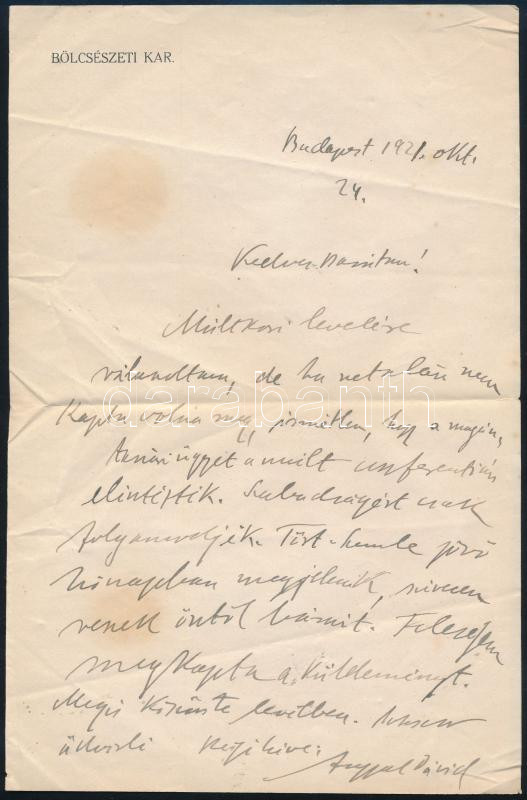 BÖLCSÉSZETI KAR.
Budapest 1921. okt.
24.
Kedves Barátom!
Multkori levelére
válaszoltam, de ha netalán nem
kapta volna meg, ismétlem, hogy a magán-
tanári ügyét a mult conferentián
elintézték. Szabadságért csak
folyamodjék. Tört. Szemle jövő
hónapban megjelenik, szivesen
veszek öntől bármit. Feleségem
megkapta a küldeményt.
Meg is köszönte levélben.
üdvözli régi hive:
Angyal Dávid
darabanth